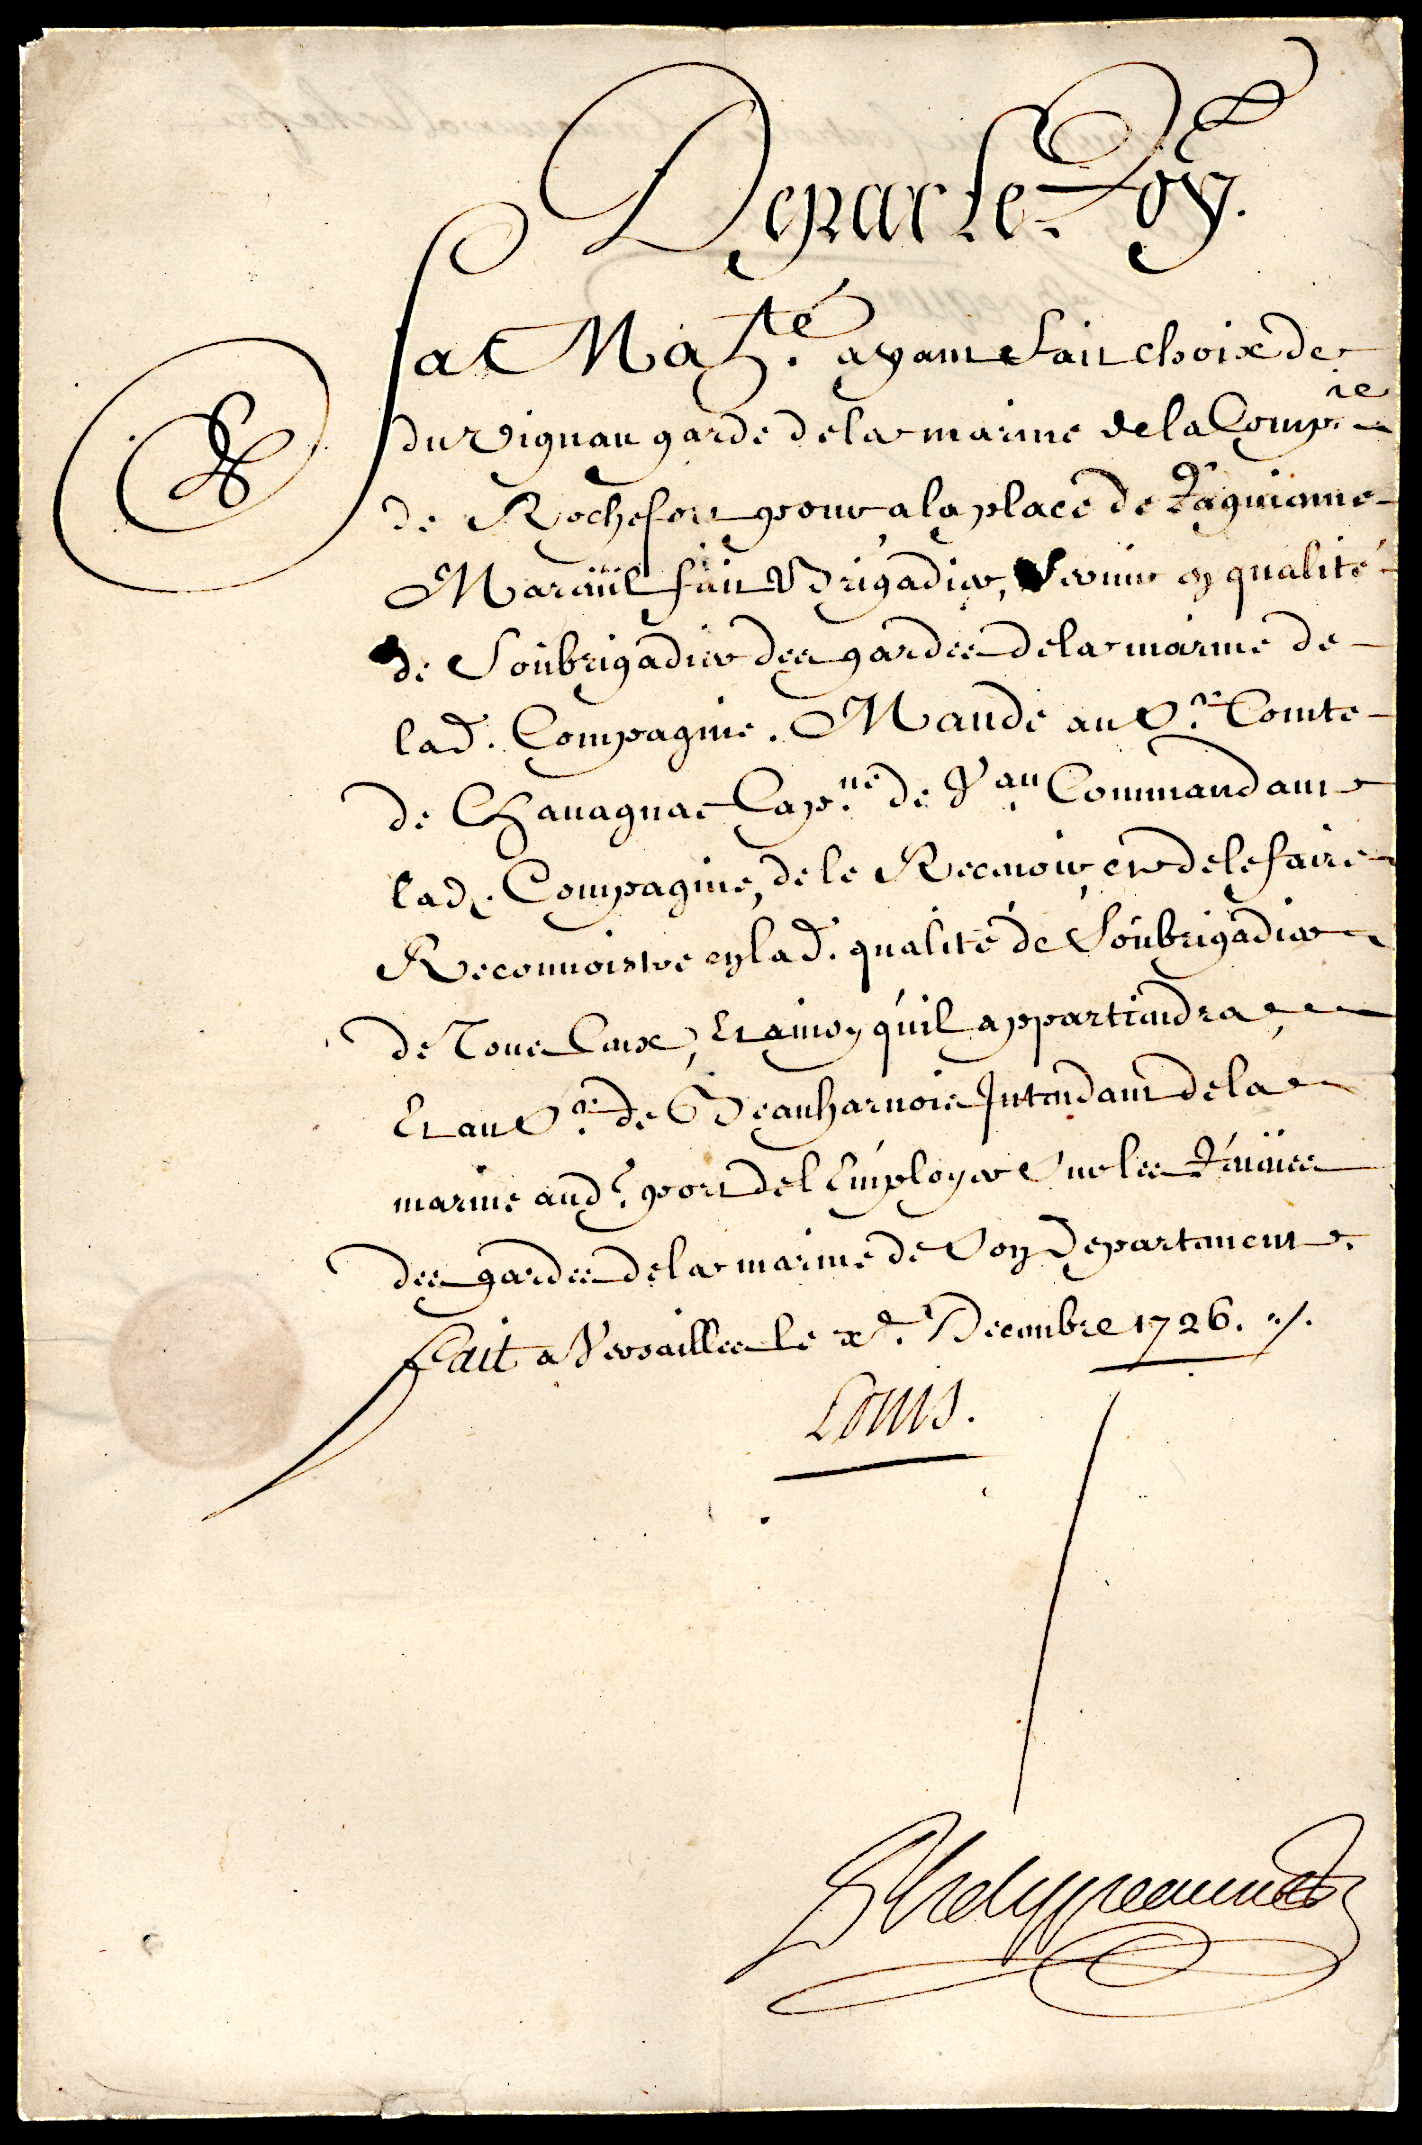 De par le Roy.
Sa Ma.té ayant fait choix de
du Vignau garde de la marine de la Comp.ie
de Rochefort pour a la place de
Maraüil fait Brigadier, Servir en qualité
de Soubrigadier des gardes de la marine de
lad. Compagnie. Mande au S.r Comte
de Chavagnac Cap.ne de V.au Commandant
lad. Compagnie, de le Recevoir, et de le faire
Reconnoistre en lad. qualité de Soubrigadier
de Tous Ceux, Et ainsy qu'il appartiendra
Et au S.r de Beauharnois Intendant de la
marine aud. port de l'Employer Sur les Reveües
des gardes de la marine de Son Departement.
Fait a Versailles le x.e Decembre 1726. ./.
Louis.
Phelypeaux